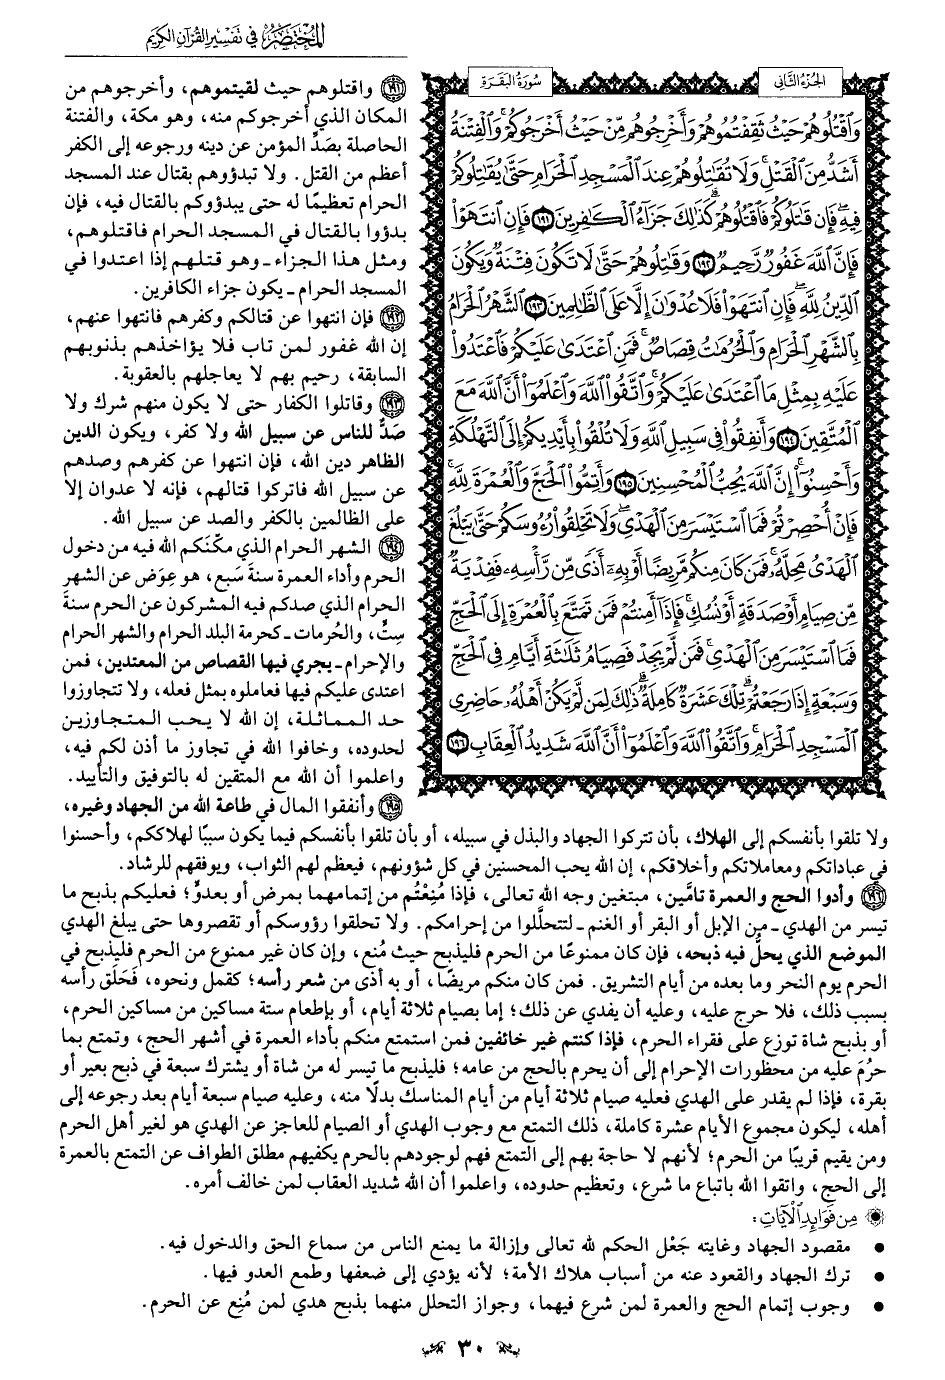 المختصر في تفسير القرآن الكريم
الجزء الثاني
سورة البقرة
وَٱقْتُلُوهُمْ حَيْثُ ثَقِفْتُمُوهُمْ وَأَخْرِجُوهُم مِّنْ حَيْثُ أَخْرَجُوكُمْ ۚ وَٱلْفِتْنَةُ
أَشَدُّ مِنَ ٱلْقَتْلِ ۚ وَلَا تُقَٰتِلُوهُمْ عِندَ ٱلْمَسْجِدِ ٱلْحَرَامِ حَتَّىٰ يُقَٰتِلُوكُمْ
فِيهِ ۖ فَإِن قَٰتَلُوكُمْ فَٱقْتُلُوهُمْ ۗ كَذَٰلِكَ جَزَآءُ ٱلْكَٰفِرِينَ ١٩١ فَإِنِ ٱنتَهَوْا۟
فَإِنَّ ٱللَّهَ غَفُورٌ رَّحِيمٌ ١٩٢ وَقَٰتِلُوهُمْ حَتَّىٰ لَا تَكُونَ فِتْنَةٌ وَيَكُونَ
ٱلدِّينُ لِلَّهِ ۖ فَإِنِ ٱنتَهَوْا۟ فَلَا عُدْوَٰنَ إِلَّا عَلَى ٱلظَّٰلِمِينَ ١٩٣ ٱلشَّهْرُ ٱلْحَرَامُ
بِٱلشَّهْرِ ٱلْحَرَامِ وَٱلْحُرُمَٰتُ قِصَاصٌ ۚ فَمَنِ ٱعْتَدَىٰ عَلَيْكُمْ فَٱعْتَدُوا۟
عَلَيْهِ بِمِثْلِ مَا ٱعْتَدَىٰ عَلَيْكُمْ ۚ وَٱتَّقُوا۟ ٱللَّهَ وَٱعْلَمُوٓا۟ أَنَّ ٱللَّهَ مَعَ
ٱلْمُتَّقِينَ ١٩٤ وَأَنفِقُوا۟ فِى سَبِيلِ ٱللَّهِ وَلَا تُلْقُوا۟ بِأَيْدِيكُمْ إِلَى ٱلتَّهْلُكَةِ ۛ
وَأَحْسِنُوٓا۟ ۛ إِنَّ ٱللَّهَ يُحِبُّ ٱلْمُحْسِنِينَ ١٩٥ وَأَتِمُّوا۟ ٱلْحَجَّ وَٱلْعُمْرَةَ لِلَّهِ ۚ
فَإِنْ أُحْصِرْتُمْ فَمَا ٱسْتَيْسَرَ مِنَ ٱلْهَدْىِ ۖ وَلَا تَحْلِقُوا۟ رُءُوسَكُمْ حَتَّىٰ يَبْلُغَ
ٱلْهَدْىُ مَحِلَّهُۥ ۚ فَمَن كَانَ مِنكُم مَّرِيضًا أَوْ بِهِۦٓ أَذًى مِّن رَّأْسِهِۦ فَفِدْيَةٌ
مِّن صِيَامٍ أَوْ صَدَقَةٍ أَوْ نُسُكٍ ۚ فَإِذَآ أَمِنتُمْ فَمَن تَمَتَّعَ بِٱلْعُمْرَةِ إِلَى ٱلْحَجِّ
فَمَا ٱسْتَيْسَرَ مِنَ ٱلْهَدْىِ ۚ فَمَن لَّمْ يَجِدْ فَصِيَامُ ثَلَٰثَةِ أَيَّامٍ فِى ٱلْحَجِّ
وَسَبْعَةٍ إِذَا رَجَعْتُمْ ۗ تِلْكَ عَشَرَةٌ كَامِلَةٌ ۗ ذَٰلِكَ لِمَن لَّمْ يَكُنْ أَهْلُهُۥ حَاضِرِى
ٱلْمَسْجِدِ ٱلْحَرَامِ ۚ وَٱتَّقُوا۟ ٱللَّهَ وَٱعْلَمُوٓا۟ أَنَّ ٱللَّهَ شَدِيدُ ٱلْعِقَابِ ١٩٦
١٩١ واقتلوهم حيث لقيتموهم، وأخرجوهم من
المكان الذي أخرجوكم منه، وهو مكة، والفتنة
الحاصلة بصَدِّ المؤمن عن دينه ورجوعه إلى الكفر
أعظم من القتل. ولا تبدؤوهم بقتال عند المسجد
الحرام تعظيمًا له حتى يبدؤوكم بالقتال فيه، فإن
بدؤوا بالقتال في المسجد الحرام فاقتلوهم،
ومثل هذا الجزاء ـ وهو قتلهم إذا اعتدوا في
المسجد الحرام ـ يكون جزاء الكافرين.
١٩٢ فإن انتهوا عن قتالكم وكفرهم فانتهوا عنهم،
إن الله غفور لمن تاب فلا يؤاخذهم بذنوبهم
السابقة، رحيم بهم لا يعاجلهم بالعقوبة.
١٩٣ وقاتلوا الكفار حتى لا يكون منهم شرك ولا
صَدٌّ للناس عن سبيل الله ولا كفر، ويكون الدين
الظاهر دين الله، فإن انتهوا عن كفرهم وصدهم
عن سبيل الله فاتركوا قتالهم، فإنه لا عدوان إلا
على الظالمين بالكفر والصد عن سبيل الله.
١٩٤ الشهر الحرام الذي مكّنكم الله فيه من دخول
الحرم وأداء العمرة سنةَ سَبع، هو عِوَض عن الشهر
الحرام الذي صدكم فيه المشركون عن الحرم سنةَ
سِتٍّ، والحُرمات ـ كحرمة البلد الحرام والشهر الحرام
والإحرام ـ يجري فيها القصاص من المعتدين، فمن
اعتدى عليكم فيها فعاملوه بمثل فعله، ولا تتجاوزوا
حد المماثلة، إن الله لا يحب المتجاوزين
لحدوده، وخافوا الله في تجاوز ما أذن لكم فيه،
واعلموا أن الله مع المتقين له بالتوفيق والتأييد.
١٩٥ وأنفقوا المال في طاعة الله من الجهاد وغيره،
ولا تلقوا بأنفسكم إلى الهلاك، بأن تتركوا الجهاد والبذل في سبيله، أو بأن تلقوا بأنفسكم فيما يكون سببًا لهلاككم، وأحسنوا
في عباداتكم ومعاملاتكم وأخلاقكم، إن الله يحب المحسنين في كل شؤونهم، فيعظم لهم الثواب، ويوفقهم للرشاد.
١٩٦ وأدوا الحج والعمرة تامَّين، مبتغين وجه الله تعالى، فإذا مُنِعْتُم من إتمامهما بمرض أو بعدوٍّ؛ فعليكم بذبح ما
تيسر من الهدي ـ من الإبل أو البقر أو الغنم ـ لتتحلَّلوا من إحرامكم. ولا تحلقوا رؤوسكم أو تقصروها حتى يبلغ الهدي
الموضع الذي يحلُّ فيه ذبحه، فإن كان ممنوعًا من الحرم فليذبح حيث مُنع، وإن كان غير ممنوع من الحرم فليذبح في
الحرم يوم النحر وما بعده من أيام التشريق. فمن كان منكم مريضًا، أو به أذى من شعر رأسه؛ كقمل ونحوه، فحَلَق رأسه
بسبب ذلك، فلا حرج عليه، وعليه أن يفدي عن ذلك؛ إما بصيام ثلاثة أيام، أو بإطعام ستة مساكين من مساكين الحرم،
أو بذبح شاة توزع على فقراء الحرم، فإذا كنتم غير خائفين فمن استمتع منكم بأداء العمرة في أشهر الحج، وتمتع بما
حرُمَ عليه من محظورات الإحرام إلى أن يحرم بالحج من عامه؛ فليذبح ما تيسر له من شاة أو يشترك سبعة في ذبح بعير أو
بقرة، فإذا لم يقدر على الهدي فعليه صيام ثلاثة أيام من أيام المناسك بدلًا منه، وعليه صيام سبعة أيام بعد رجوعه إلى
أهله، ليكون مجموع الأيام عشرة كاملة، ذلك التمتع مع وجوب الهدي أو الصيام للعاجز عن الهدي هو لغير أهل الحرم
ومن يقيم قريبًا من الحرم؛ لأنهم لا حاجة بهم إلى التمتع فهم لوجودهم بالحرم يكفيهم مطلق الطواف عن التمتع بالعمرة
إلى الحج، واتقوا الله باتباع ما شرع، وتعظيم حدوده، واعلموا أن الله شديد العقاب لمن خالف أمره.
من فوائد الآيات:
• مقصود الجهاد وغايته جَعْل الحكم لله تعالى وإزالة ما يمنع الناس من سماع الحق والدخول فيه.
• ترك الجهاد والقعود عنه من أسباب هلاك الأمة؛ لأنه يؤدي إلى ضعفها وطمع العدو فيها.
• وجوب إتمام الحج والعمرة لمن شرع فيهما، وجواز التحلل منهما بذبح هدي لمن مُنِع عن الحرم.
٣٠